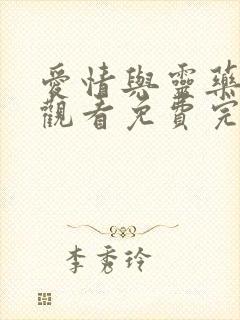 愛情與靈藥
觀看免費完
李秀玲